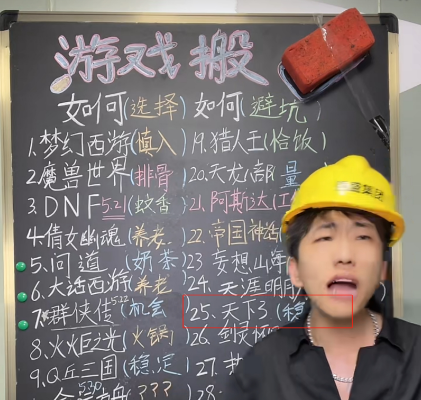 游戏搬
如何(选择)如何(避坑)
1.梦幻西游(慎入)
2.魔兽世界(排骨)
3.DNF521(蚊香)
4.倩女幽魂(养老)
5.问道(奶茶)
6.大话西游(养老)
7.群侠传(机会)
8.火炬之光(火锅)
9.Q丘三国(稳定)
530
(???
19.猎人王(恰饭)
20.天龙八部(量
21.阿斯达(工
22.帝国神话
23.妄想山海
24.天涯明月
25.天下3(稳
26.剑灵怀
27.
28.
集团